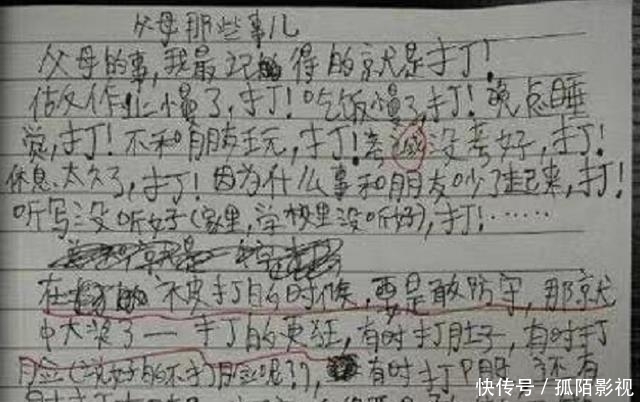 父母那些事儿
父母的事,我最记得的就是打!
做作业慢了,打!吃饭慢了,打!晚点睡
觉,打!不和朋友玩,打!考试没考好,打!
休息太久了,打!因为什么事和朋友吵了起来,打!
听写没听好(家里,学校里没听好),打!……
在被打的时候,要是敢防守,那就
中大奖了一打的更狂,有时打肚子,有时打
脸(说好的不打脸呢?),有时打 还有
快传号/孤陌影视